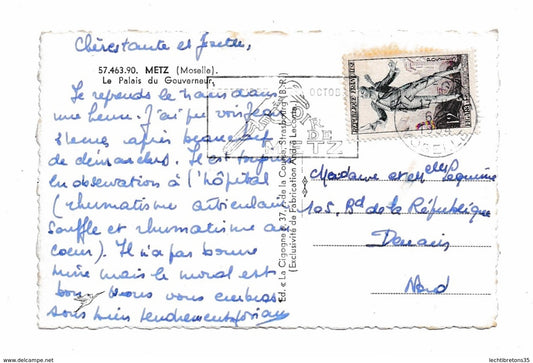 Chère tante et Josette,
57.463.90. METZ (Moselle).
Le Palais du Gouverneur.
Je reprends le train dans
une heure. J'ai pu voir Jean
Étienne, après beaucoup
de démarches. Il est toujours
en observation à l'hôpital
(rhumatisme articulaire
souffle et rhumatisme au
cœur). Il n'a pas bonne
mine mais le moral est
bon. Nous vous embrassons
bien tendrement
Éd. « La Cigogne », 37, r. de la Course, Strasbourg (B.-R.)
(Exclusivité de Fabrication André Leconte)
OCTOB
DE
TZ
REPUBLIQUE FRANÇAISE
POSTES
12F
MOSELLE
Madame et Melle
105, Bd de la République
Denain
Nord
www.delcampe.net
lechtibretons59